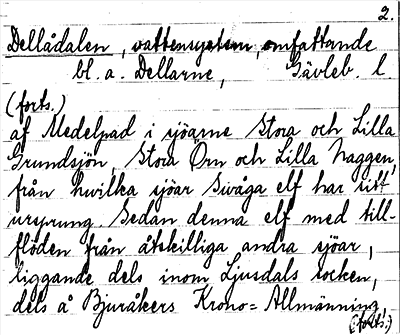 2.
Dellådalen, vattensystem, omfattande
bl. a. Dellarne, Gävleb. l
(forts.)
af Medelpad i sjöarne Stora och Lilla
Grundsjön, Stora Örn och Lilla Naggen,
från hwilka sjöar Swåga elf har sitt
ursprung. Sedan denna elf med till-
flöden från åtskilliga andra sjöar,
liggande dels inom Ljusdals socken,
dels å Bjuråkers Krono=Allmänning
(forts.)